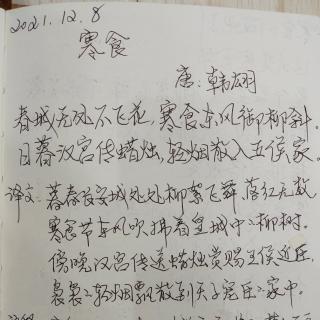 2021.12.8
寒食
唐:韩翃
春城无处不飞花,寒食东风御柳斜。
日暮汉宫传蜡烛,轻烟散入五侯家。
译文:暮春长安城处处柳絮飞舞,落红无数,
寒食节东风吹拂着皇城中的柳树。
傍晚汉宫传送蜡烛赏赐王侯近臣,
袅袅的轻烟飘散到天子宠臣的家中。